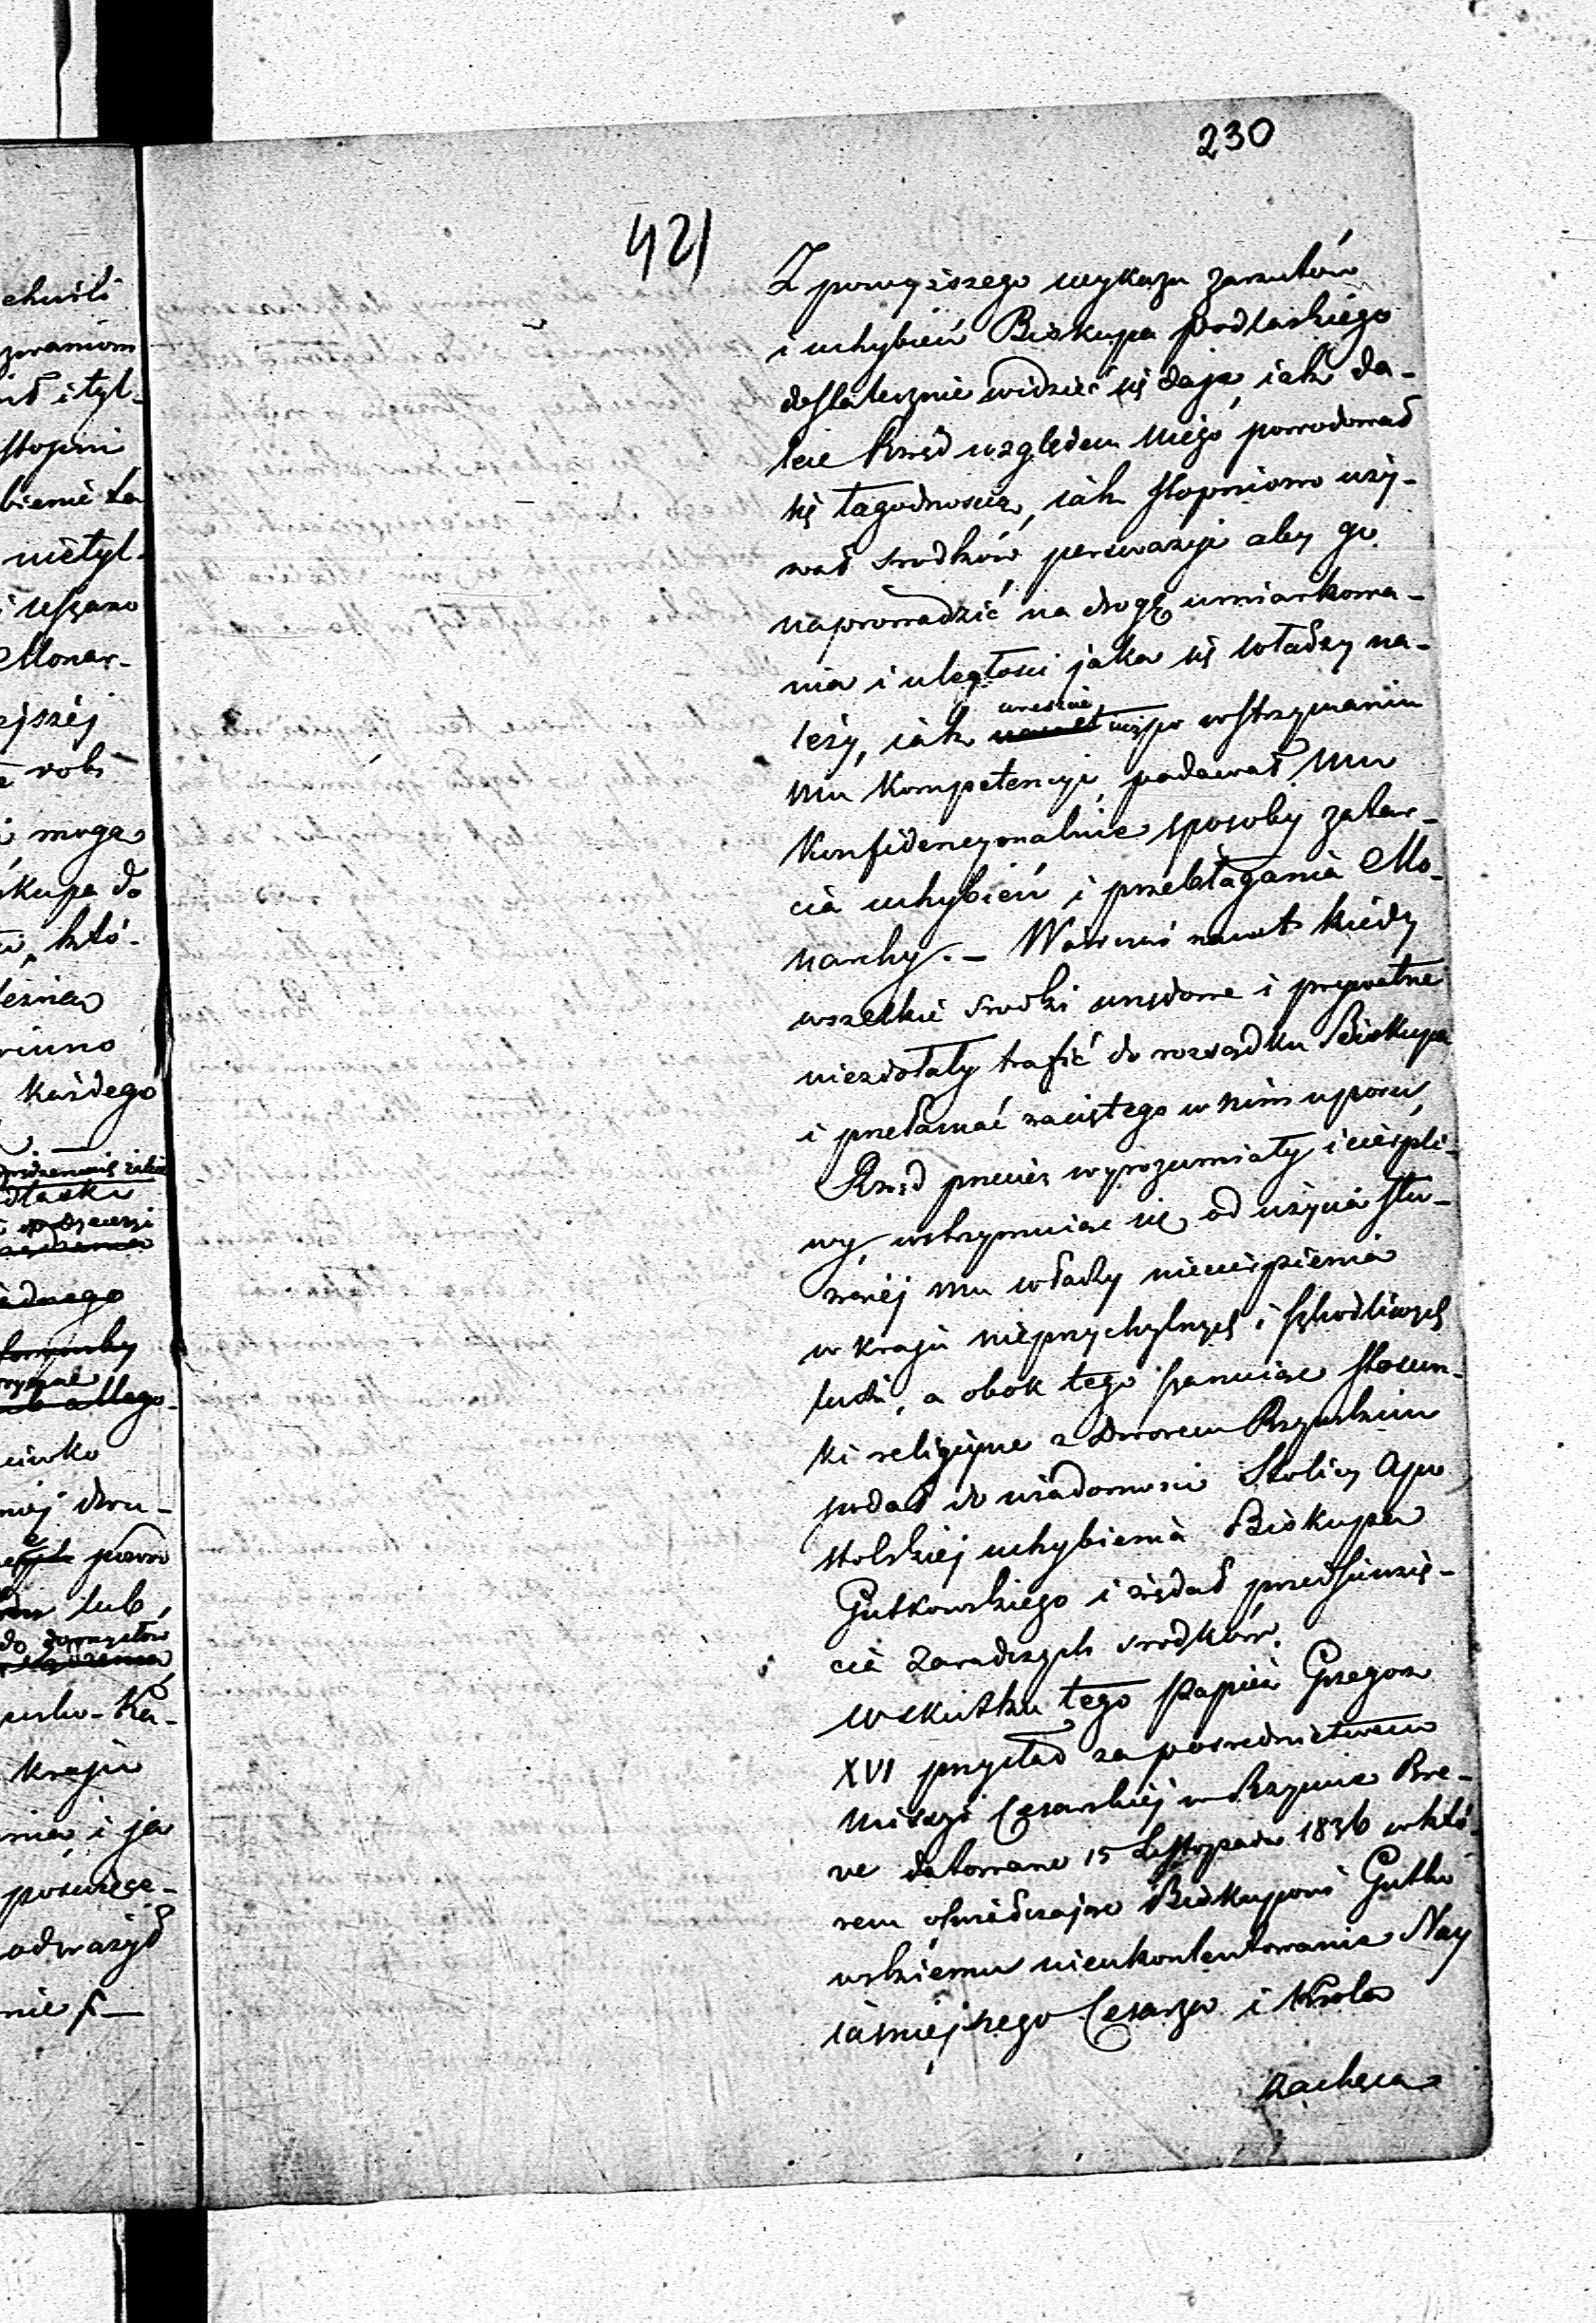 230
421
Z powyższego wykazu zarzutów
i uchybień Biskupa podlaskiego
dostatecznie widzieć się daje, iak da-
lece Rząd względem niego powodował
się łagodnoscią, iak stopniowo uży-
wał srodków perswazyi aby go
naprowadzić na drogę umiarkowa-
nia i uległosci jaka się władzy na-
leży, iak wreszcie po wstrzymaniu
mu kompetencyi, podawał mu
konfidencyonalnie sposoby zatar-
cia uchybień i przebłagania Mo-
narchy. — Wówczas nawet kiedy
wszelkie srodki urzędowe i prywatne
niezdołały trafić do rozsądku Biskupa
i przełamać zaciętego w nim uporu,
Rząd przecież wyrozumiały i cierpli-
wy, wstrzymuiąc się od użycia słu-
żącej mu władzy niecierpienia
w kraju nieprzychylnych i szkodliwych
ludzi, a obok tego szanuiąc stosun-
ki religijne z Dworem Rzymskim
podał do wiadomosci Stolicy Apo-
stolskiej uchybienia Biskupa
Gutkowskiego i żądał przedsięwzię-
cia zaradczych srodków.
W skutku tego Papież Grzegorz
XVI przysłał za posrednictwem
Missyi Cesarskiej w Rzymie Bre-
ve datowane 15 Listopada 1836 w któ-
rem oświadczając Biskupowi Gutko
wskiemu nieukontentowanie Nay
iaśniejszego Cesarza i Króla
zachęca
chwili
ił i tyl-
stopni
nietyl-
Monar-
ejszéj
mogą
skupa do
któ-
każdego
dlaski
ednego
lub
kraju
i ja